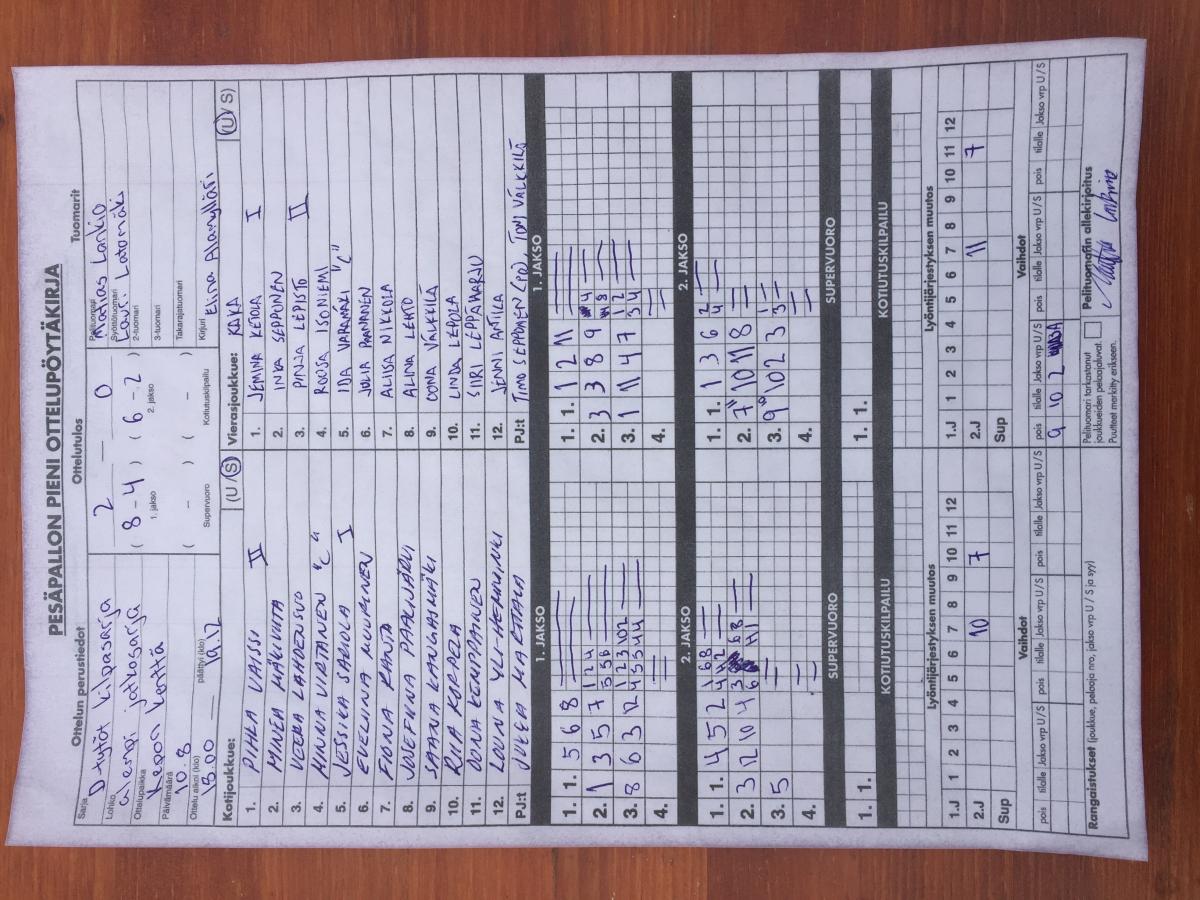 PESÄPALLON PIENI OTTELUPÖYTÄKIRJA
Ottelun perustiedot
Sarja D-tytöt kilpasarja
Lohko alempi jatkosarja
Ottelupaikka Kepon kenttä
Päivämäärä 10.8
Ottelu alkoi (klo) 18.00 päättyi (klo) 19.12
Ottelutulos
2 — 0
( 8 - 4 ) ( 6 - 2 )
1. jakso 2. jakso
( - ) ( - )
Supervuoro Kotiutuskilpailu
Tuomarit
Pelituomari Mathias Lankio
Syöttötuomari Lauri Latomäki
2-tuomari
3-tuomari
Takarajatuomari
Kirjuri Elina Alamylläri
Kotijoukkue: (U / S)
1. PIHLA VAISSI II
2. MINEA MÄKIVIITA
3. VEERA LAHDENSUO
4. MINNA VIRTANEN "C"
5. JESSIKA SAMOLA I
6. EVELIINA NUUPINEN
7. FIONA RANTO
8. JOSEFIINA PAALIJÄRVI
9. SAANA KANGASMÄKI
10. RIIA KORPELA
11. OONA KEMPPAINEN
12. LOUNA YLI-HEMMINKI
PJ:t JUKKA MARTTALA
Vierasjoukkue: KAKA (U / S)
1. JEMINA KETOLA I
2. INKA SEPPONEN
3. PINJA LEPISTÖ II
4. ROOSA ISONIEMI
5. IIDA VARAMÄKI "C"
6. JULIA PAANANEN
7. ALIISA NIKKOLA
8. ALINA LEHTO
9. OONA VÄLKKILÄ
10. LINDA LEPOLA
11. SIIRI LEPPÄHARJU
12. JENNI ANTILA
PJ:t TIMO SEPPONEN (PJ), TONI VÄLKKILÄ
1. JAKSO 1. JAKSO
1. 1. 5 6 8
2. 1 3 5 7
3. 8 6 3 12
4.
1. 1. 1 2 11
2. 3 3 8 9
3. 1 11 4 7
4.
2. JAKSO 2. JAKSO
1. 1. 4 5 2
2. 3 12 10 4
3. 5
4.
1. 1. 1 3 6
2. 7 10 11 8
3. 9 10 2 3
4.
SUPERVUORO SUPERVUORO
1. 1. 1. 1.
KOTIUTUSKILPAILU KOTIUTUSKILPAILU
Lyöntijärjestyksen muutos Lyöntijärjestyksen muutos
1.J 1 2 3 4 5 6 7 8 9 10 11 12
2.J 10 7
Sup
1.J 1 2 3 4 5 6 7 8 9 10 11 12
2.J 11 7
Sup
Vaihdot Vaihdot
pois tilalle Jakso vrp U / S pois tilalle Jakso vrp U / S pois tilalle Jakso vrp U / S
pois tilalle Jakso vrp U / S pois tilalle Jakso vrp U / S pois tilalle Jakso vrp U / S
9 10 2
Rangaistukset (joukkue, pelaaja nro, jakso vrp U / S ja syy)
Pelituomari tarkastanut
joukkueiden pelaajaluvat.
Puutteet merkitty erikseen.
Pelituomarin allekirjoitus